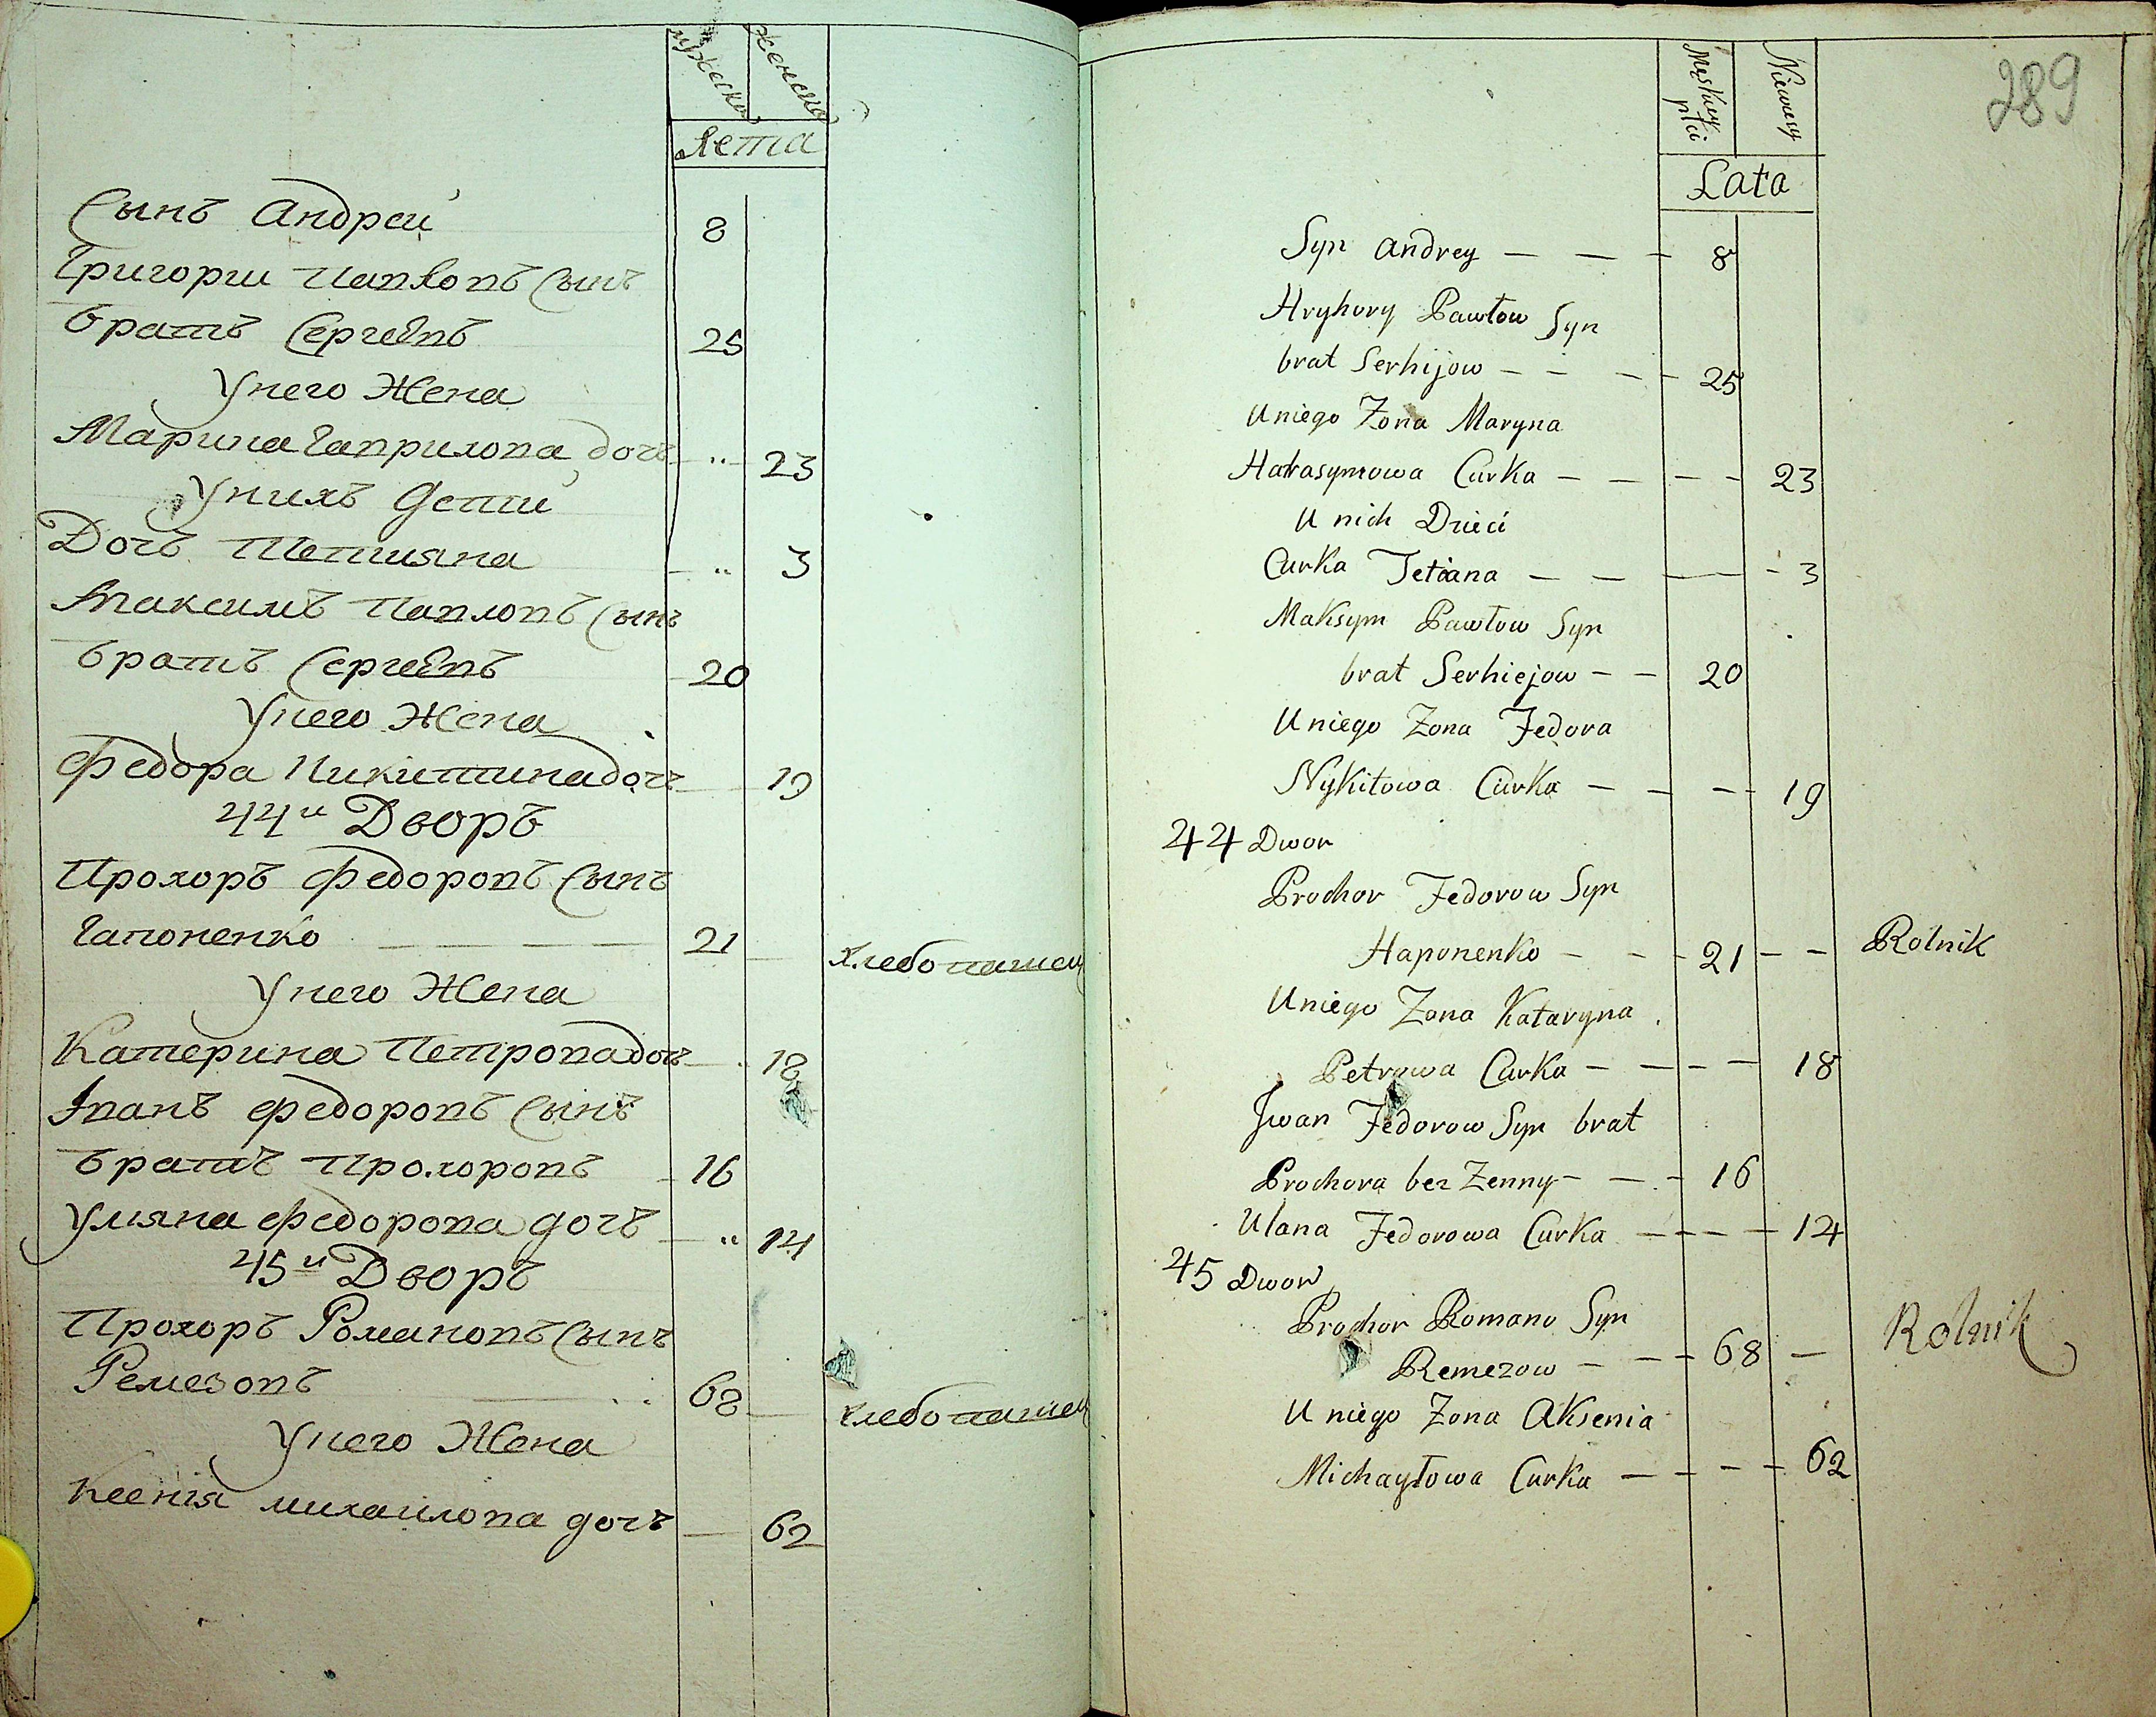 мужеска
женска
Лета
Сынъ Андрей
8
Григории Павловъ Сынъ
братъ Сергеевъ
25
Унего Жена
Марина Гаврилова дочь
23
Унихъ Дети
Дочь Тетияна
3
Максимъ Павловъ Сынъ
братъ Сергеевъ
20
Унего Жена
Федора Никитина дочь
19
44й Дворъ
Прохоръ Федоровъ Сынъ
Гапоненко
21
хлебопашец
Унего Жена
Катерина Петрова доч
18
Иванъ Федоровъ Сынъ
братъ Прохоровъ
16
Уляна Федорова дочь
14
45й Дворъ
Прохоръ Романовъ Сынъ
Ремезовъ
68
хлебопашец
Унего Жена
Ксенія михаилова дочь
62
289
Męskiey płci
Niewiesy
Lata
Syn Andrey — — — 8
Hryhory Pawłow Syn
brat Serhijow — — — 25
Uniego Zona Maryna
Harasymowa Curka — — — — 23
U nich Dzieci
Curka Tetiana — — — - 3
Maksym Pawłow Syn
brat Serhiejow — — 20
Uniego Zona Fedora
Nykitowa Curka — — — 19
44 Dwor
Prochor Fedorow Syn
Haponenko — — — 21 — — Rolnik
Uniego Zona Kataryna
Petrowa Curka — — — — 18
Jwan Fedorow Syn brat
Prochora bez Zenny — — - 16
Ulana Fedorowa Curka — — — — 14
45 Dwor
Prochor Romano Syn
Remezow — — — 68 — Rolnik
U niego Zona Aksenia
Michayłowa Curka — — — — 62